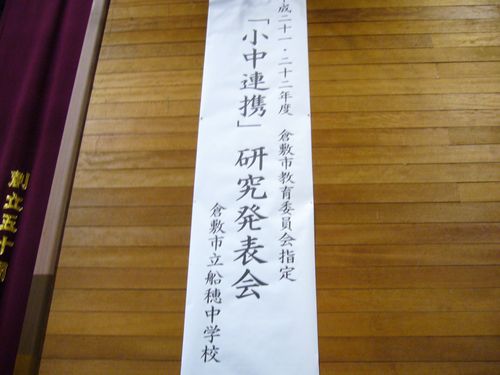 平成二十一・二十二年度 倉敷市教育委員会指定
「小中連携」研究発表会
倉敷市立船穂中学校
創立五十周